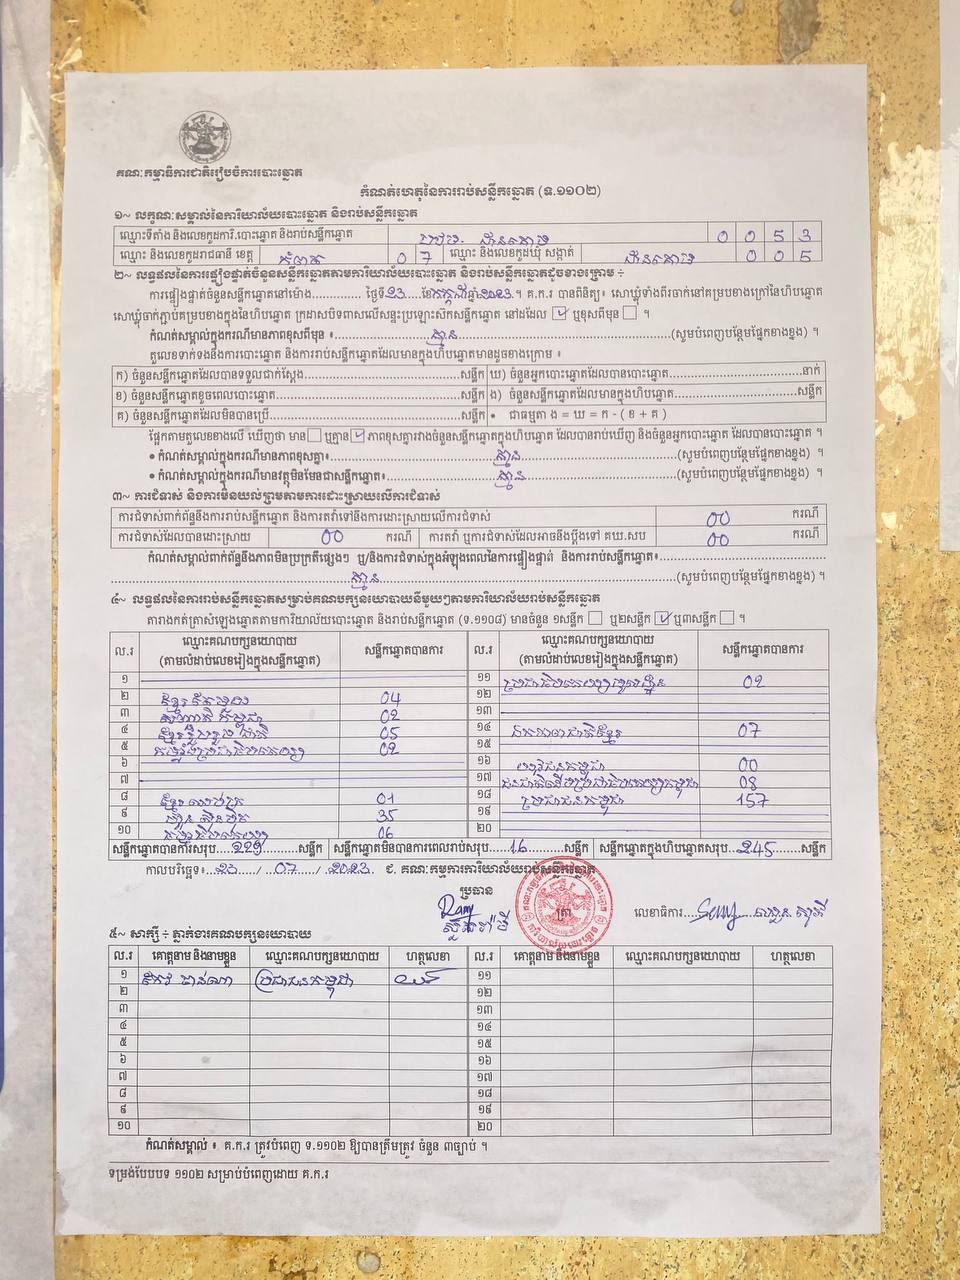 គណៈកម្មាធិការជាតិរៀបចំការបោះឆ្នោត
កំណត់ហេតុនៃការរាប់សន្លឹកឆ្នោត (ទ.១១០២)
១~ លក្ខណៈសម្គាល់នៃការិយាល័យបោះឆ្នោត និងរាប់សន្លឹកឆ្នោត
ឈ្មោះទីតាំង និងលេខកូដការិ.បោះឆ្នោត និងរាប់សន្លឹកឆ្នោត 0 0 5 3
ឈ្មោះ និងលេខកូដរាជធានី ខេត្ត កំពត 0 7 ឈ្មោះ និងលេខកូដឃុំ សង្កាត់ 0 0 5
២~ លទ្ធផលនៃការផ្ទៀងផ្ទាត់ចំនួនសន្លឹកឆ្នោតតាមការិយាល័យបោះឆ្នោត និងរាប់សន្លឹកឆ្នោតដូចខាងក្រោម ÷
ការផ្ទៀងផ្ទាត់ចំនួនសន្លឹកឆ្នោតនៅម៉ោង............. ថ្ងៃទី23...ខែកក្កដាឆ្នាំ2023.។ គ.ក.រ បានពិនិត្យ៖ សោឃ្លុំទាំងពីរចាក់នៅគម្របខាងក្រៅនៃហិបឆ្នោត
សោឃ្លុំចាក់ភ្ជាប់គម្របខាងក្នុងនៃហិបឆ្នោត ក្រដាសបិទពាសលើសន្ទះប្រឡោះសិកសន្លឹកឆ្នោត នៅដដែល ☑ ឬខុសពីមុន ☐ ។
កំណត់សម្គាល់ក្នុងករណីមានភាពខុសពីមុន ៖ គ្មាន (សូមបំពេញបន្ថែមផ្នែកខាងខ្នង) ។
តួលេខទាក់ទងនឹងការបោះឆ្នោត និងការរាប់សន្លឹកឆ្នោតដែលមានក្នុងហិបឆ្នោតមានដូចខាងក្រោម ៖
ក) ចំនួនសន្លឹកឆ្នោតដែលបានទទួលជាក់ស្តែង.............សន្លឹក ឃ) ចំនួនអ្នកបោះឆ្នោតដែលបានបោះឆ្នោត.............នាក់
ខ) ចំនួនសន្លឹកឆ្នោតខូចពេលបោះឆ្នោត.............សន្លឹក ង) ចំនួនសន្លឹកឆ្នោតដែលមានក្នុងហិបឆ្នោត.............សន្លឹក
គ) ចំនួនសន្លឹកឆ្នោតដែលមិនបានប្រើ.............សន្លឹក • ជាធម្មតា ង = ឃ = ក - ( ខ + គ )
ផ្អែកតាមតួលេខខាងលើ ឃើញថា មាន ☐ ឬគ្មាន ☑ ភាពខុសគ្នារវាងចំនួនសន្លឹកឆ្នោតក្នុងហិបឆ្នោត ដែលបានរាប់ឃើញ និងចំនួនអ្នកបោះឆ្នោត ដែលបានបោះឆ្នោត ។
• កំណត់សម្គាល់ក្នុងករណីមានភាពខុសគ្នា៖ គ្មាន (សូមបំពេញបន្ថែមផ្នែកខាងខ្នង) ។
• កំណត់សម្គាល់ក្នុងករណីមានវត្ថុមិនមែនជាសន្លឹកឆ្នោត៖ គ្មាន (សូមបំពេញបន្ថែមផ្នែកខាងខ្នង) ។
៣~ ការជំទាស់ និងការមិនយល់ព្រមតាមការដោះស្រាយលើការជំទាស់
ការជំទាស់ពាក់ព័ន្ធនឹងការរាប់សន្លឹកឆ្នោត និងការតវ៉ាទៅនឹងការដោះស្រាយលើការជំទាស់ 00 ករណី
ការជំទាស់ដែលបានដោះស្រាយ 00 ករណី ការតវ៉ា ឬការជំទាស់ដែលអាចនឹងប្តឹងទៅ គឃ.សប 00 ករណី
កំណត់សម្គាល់ពាក់ព័ន្ធនឹងភាពមិនប្រក្រតីផ្សេងៗ ឬ/និងការជំទាស់ក្នុងអំឡុងពេលនៃការផ្ទៀងផ្ទាត់ និងការរាប់សន្លឹកឆ្នោត៖
គ្មាន (សូមបំពេញបន្ថែមផ្នែកខាងខ្នង) ។
៤~ លទ្ធផលនៃការរាប់សន្លឹកឆ្នោតសម្រាប់គណបក្សនយោបាយនីមួយៗតាមការិយាល័យរាប់សន្លឹកឆ្នោត
តារាងកត់ត្រាសំឡេងឆ្នោតតាមការិយាល័យបោះឆ្នោត និងរាប់សន្លឹកឆ្នោត (ទ.១១០៨) មានចំនួន ១សន្លឹក ☐ ឬ២សន្លឹក ☑ ឬ៣សន្លឹក ☐ ។
ល.រ ឈ្មោះគណបក្សនយោបាយ (តាមលំដាប់លេខរៀងក្នុងសន្លឹកឆ្នោត) សន្លឹកឆ្នោតបានការ ល.រ ឈ្មោះគណបក្សនយោបាយ (តាមលំដាប់លេខរៀងក្នុងសន្លឹកឆ្នោត) សន្លឹកឆ្នោតបានការ
១
២ ខ្មែរតែមួយ 04
៣ 02
៤ ខ្មែររួបរួមជាតិ 05
៥ កម្លាំងប្រជាធិបតេយ្យ 02
៦
៧
៨ ខ្មែរ 01
៩ ហ្វ៊ុនស៊ិនប៉ិច 35
១០ 06
១១ 02
១២
១៣
១៤ 07
១៥
១៦ យុវជនកម្ពុជា 00
១៧ ជនជាតិដើមប្រជាធិបតេយ្យកម្ពុជា 08
១៨ ប្រជាជនកម្ពុជា 157
១៩
២០
សន្លឹកឆ្នោតបានការសរុប..229..សន្លឹក សន្លឹកឆ្នោតមិនបានការពេលរាប់សរុប..16..សន្លឹក សន្លឹកឆ្នោតក្នុងហិបឆ្នោតសរុប..245..សន្លឹក
កាលបរិច្ឆេទ៖..23..../..07..../..2023. ជ. គណៈកម្មការការិយាល័យរាប់សន្លឹកឆ្នោត
ប្រធាន
ត្រា លេខាធិការ
៥~ សាក្សី ÷ ភ្នាក់ងារគណបក្សនយោបាយ
ល.រ គោត្តនាម និងនាមខ្លួន ឈ្មោះគណបក្សនយោបាយ ហត្ថលេខា ល.រ គោត្តនាម និងនាមខ្លួន ឈ្មោះគណបក្សនយោបាយ ហត្ថលេខា
១ ប្រជាជនកម្ពុជា ១១
២ ១២
៣ ១៣
៤ ១៤
៥ ១៥
៦ ១៦
៧ ១៧
៨ ១៨
៩ ១៩
១០ ២០
កំណត់សម្គាល់ ៖ គ.ក.រ ត្រូវបំពេញ ទ.១១០២ ឱ្យបានត្រឹមត្រូវ ចំនួន ៣ច្បាប់ ។
ទម្រង់បែបបទ ១១០២ សម្រាប់បំពេញដោយ គ.ក.រ